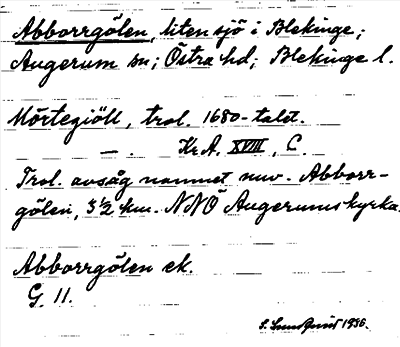 Abborrgölen, liten sjö i Blekinge;
Augerum sn; Östra hd; Blekinge l.
Mörtegiöll, trol. 1680-talet.
— . Kr.A. XVIII, C.
Trol. avsåg namnet nuv. Abborr-
gölen, 3 1/2 km. NNÖ Augerums kyrka.
Abborrgölen ek.
G. 11.
S. 1936.